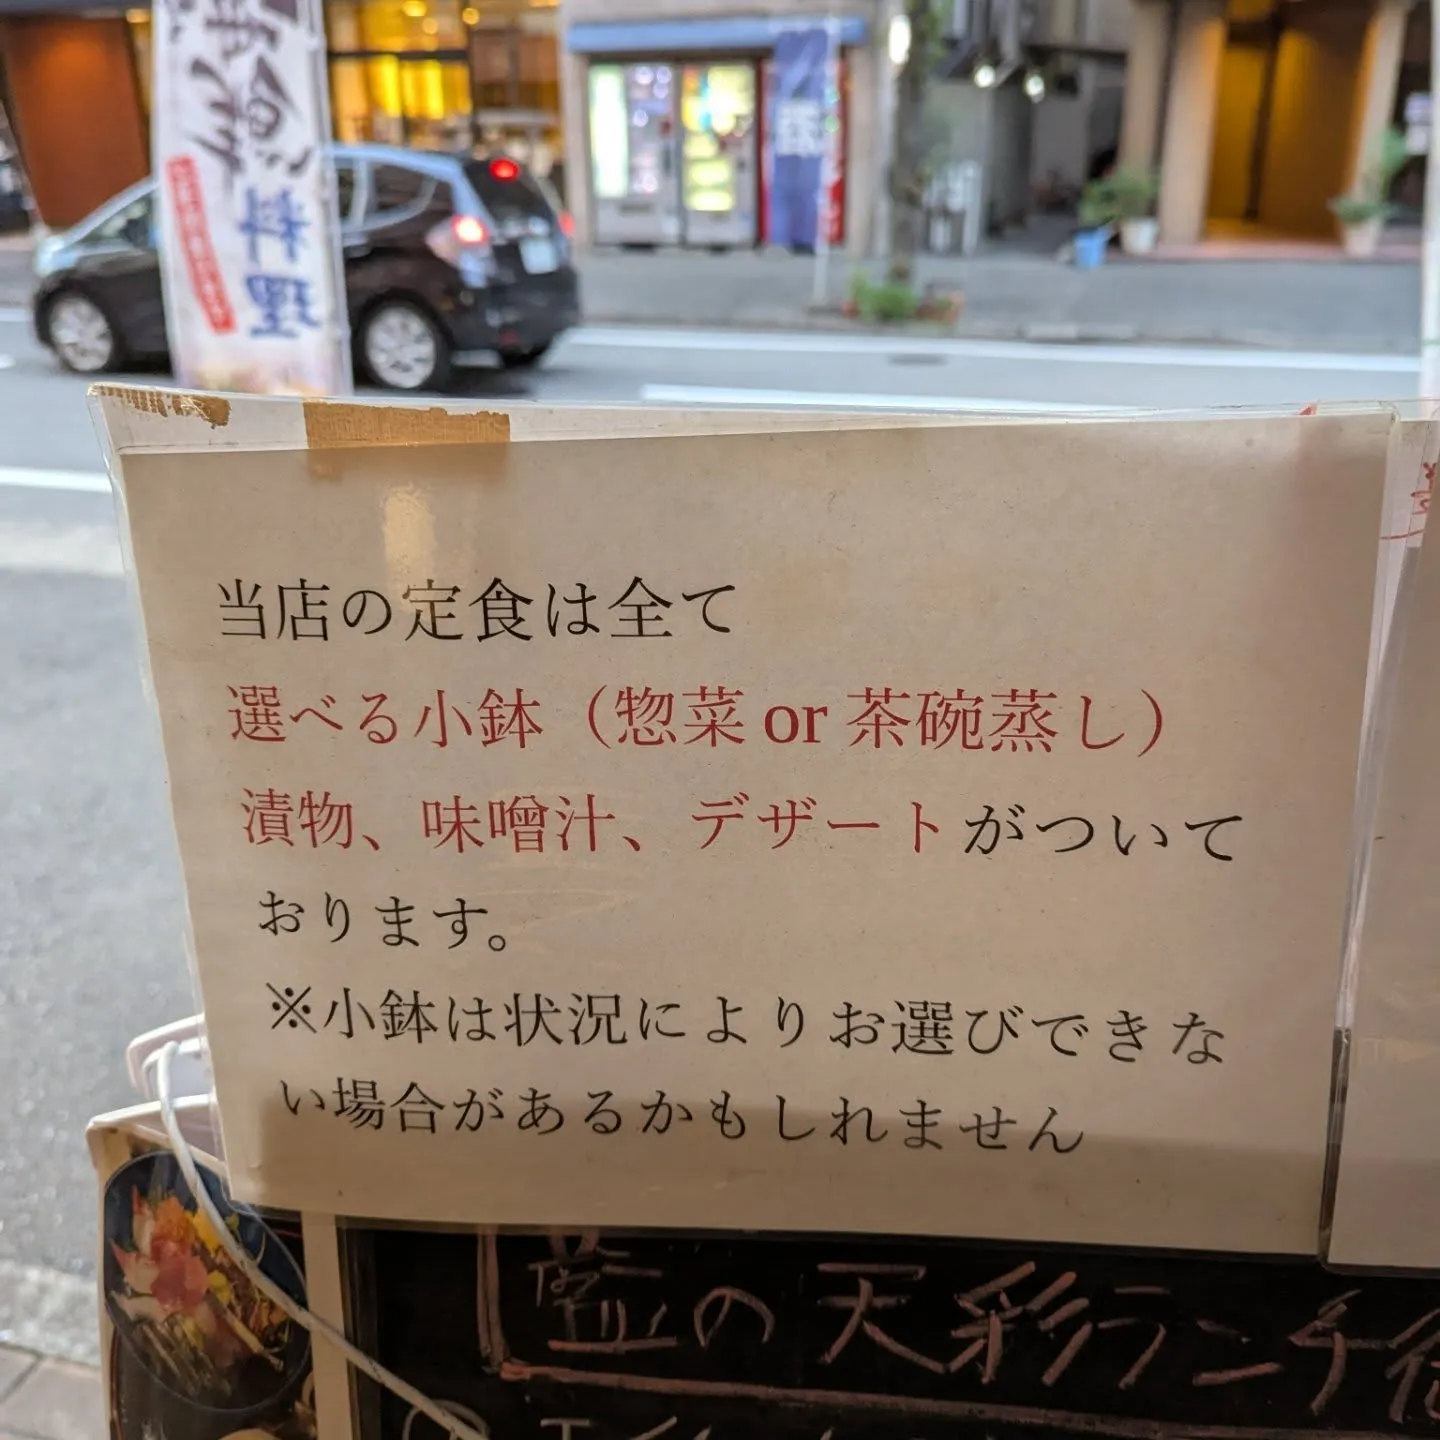 料理
当店の定食は全て
選べる小鉢（惣菜 or 茶碗蒸し）
漬物、味噌汁、デザートがついて
おります。
※小鉢は状況によりお選びできな
い場合があるかもしれません
藍の天彩ランチ